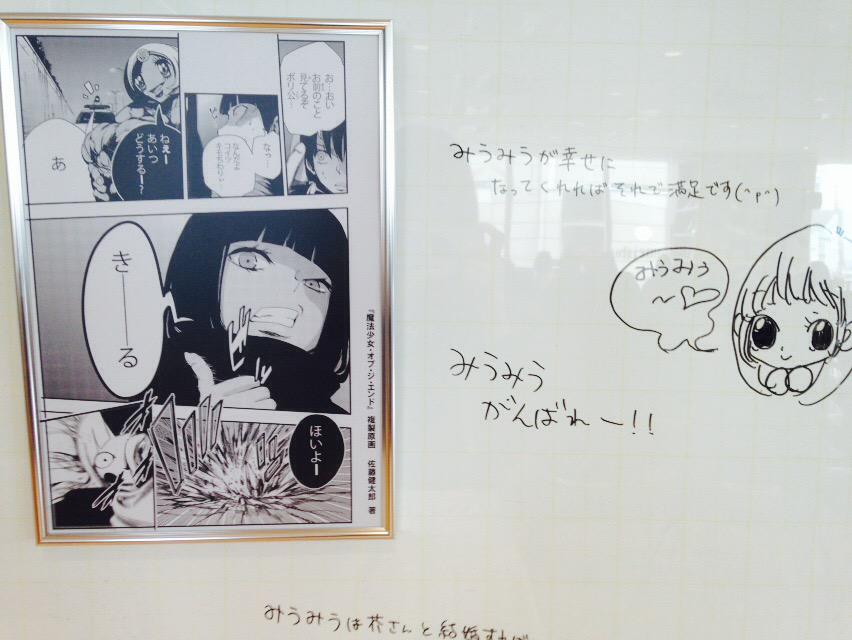 お…おい
お前のこと
見てるぞ
ポリ公…
なっ…
なんだよ
コイツ
キモちわりぃ
ねぇー
あいつ
どうするー？
あ
きーーる
ほいよー
『魔法少女・オブ・ジ・エンド』 複製原画 佐藤健太郎 著
みうみうが幸せに
なってくれればそれで満足です(^p^)
みうみう
～♡
みうみう
がんばれー!!
みうみうは芥さんと結婚すれば